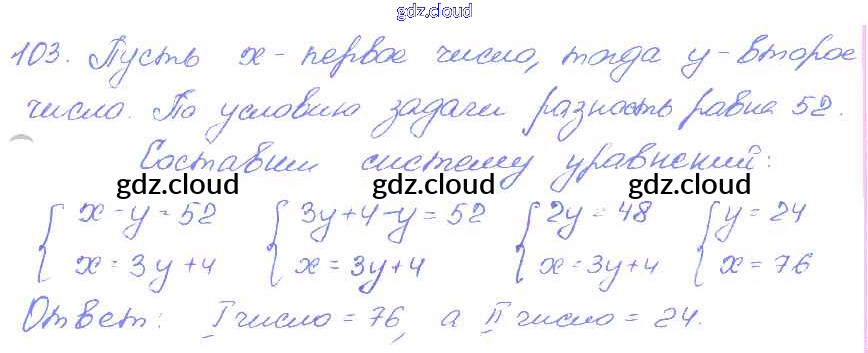 gdz.cloud
103. Пусть x - первое число, тогда y - второе
число. По условию задачи разность равна 52.
Составим систему уравнений:
gdz.cloud gdz.cloud gdz.cloud
{ x - y = 52 { 3y + 4 - y = 52 { 2y = 48 { y = 24
x = 3y + 4 x = 3y + 4 x = 3y + 4 x = 76
Ответ: I число = 76, а II число = 24.